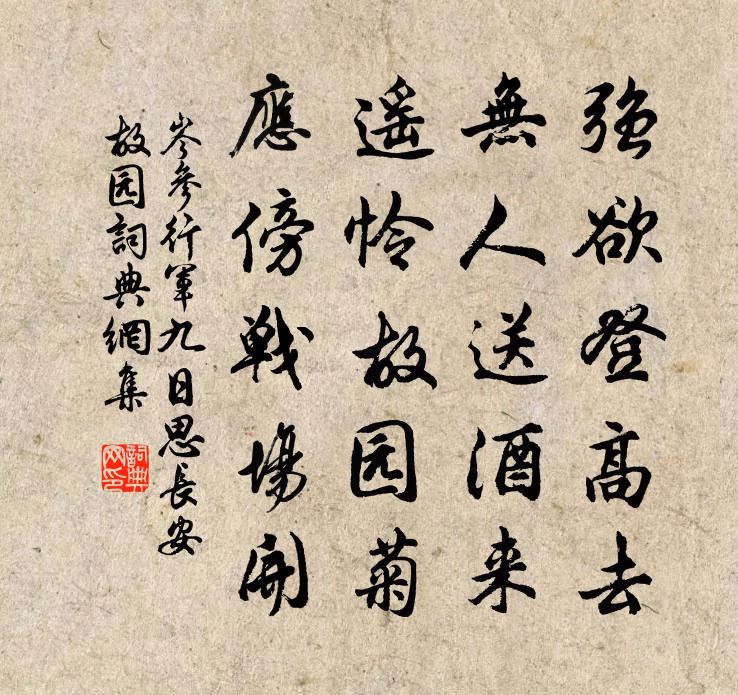 强欲登高去
無人送酒来
遥怜故园菊
應傍戰場開
岑參行軍九日思長安
故园詞典網集
詞典网印